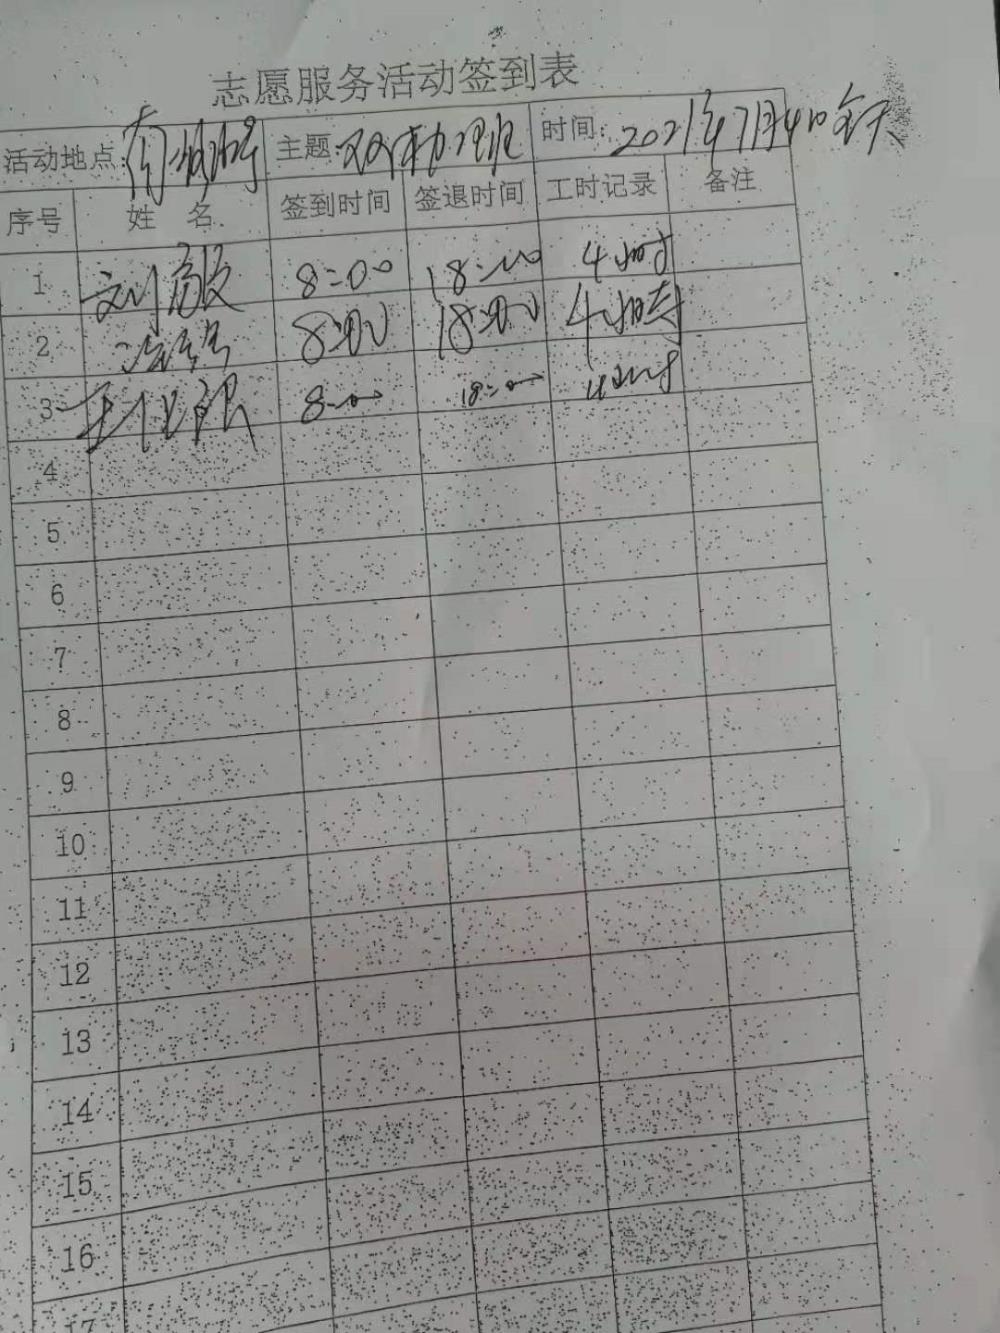 志愿服务活动签到表
活动地点: 主题: 时间: 2021年7月4日全天
序号 姓 名 签到时间 签退时间 工时记录 备注
1 刘 8:00 18:00 4小时
2 8:00 18:00 4小时
3 王 8:00 18:00 4小时
4
5
6
7
8
9
10
11
12
13
14
15
16
17